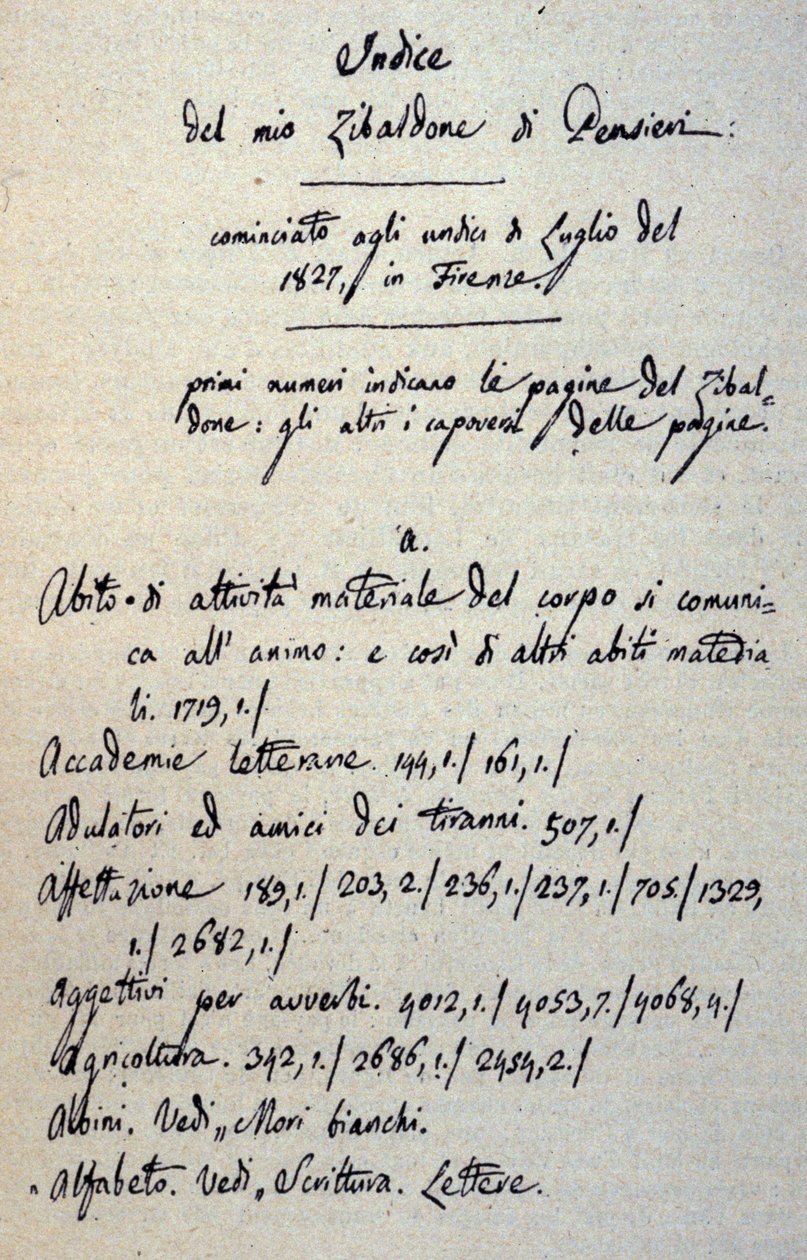 Indice
del mio Zibaldone di Pensieri:
cominciato agli undici di Luglio del
1827, in Firenze.
primi numeri indicano le pagine del Zibal=
done: gli altri i capoversi delle pagine.
a.
Abito di attività materiale del corpo si comuni=
ca all' animo: e così di altri abiti materia
li. 1719, 1./
Accademie letterarie. 144, 1./ 161, 1./
Adulatori ed amici dei tiranni. 507, 1./
Affettazione 189, 1./ 203, 2./ 236, 1./ 237, 1./ 705./ 1329,
1./ 2682, 1./
Aggettivi per avverbi. 4012, 1./ 4053, 7./ 4068, 4./
Agricoltura. 342, 1./ 2686, 1./ 2454, 2./
Albini. Vedi „ Mori bianchi.
Alfabeto. Vedi „ Scrittura. Lettere.